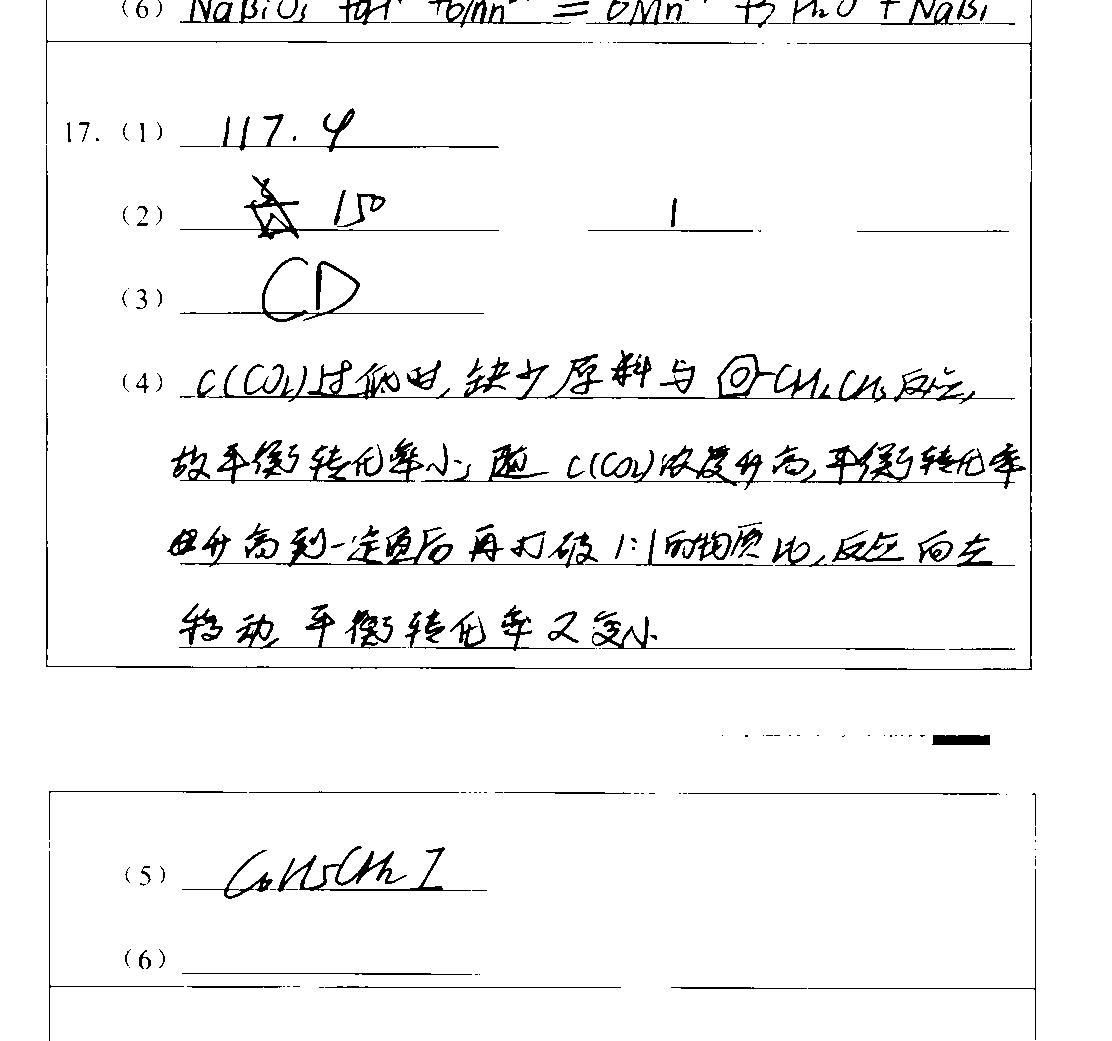 (6) NaBiO₃ + 6Mn = 6Mn + 3H₂O + NaBi
17. (1) 117.4
(2) 150 1
(3) CD
(4) C(CO₂)过低时,缺少原料与⌬-CH₂CH₃反应,
故平衡转化率小;随 C(CO₂)浓度升高,平衡转化率
升高到一定值后再打破1:1的物质比,反应向左
移动,平衡转化率又变小
(5) C₆H₅CH₂I
(6)